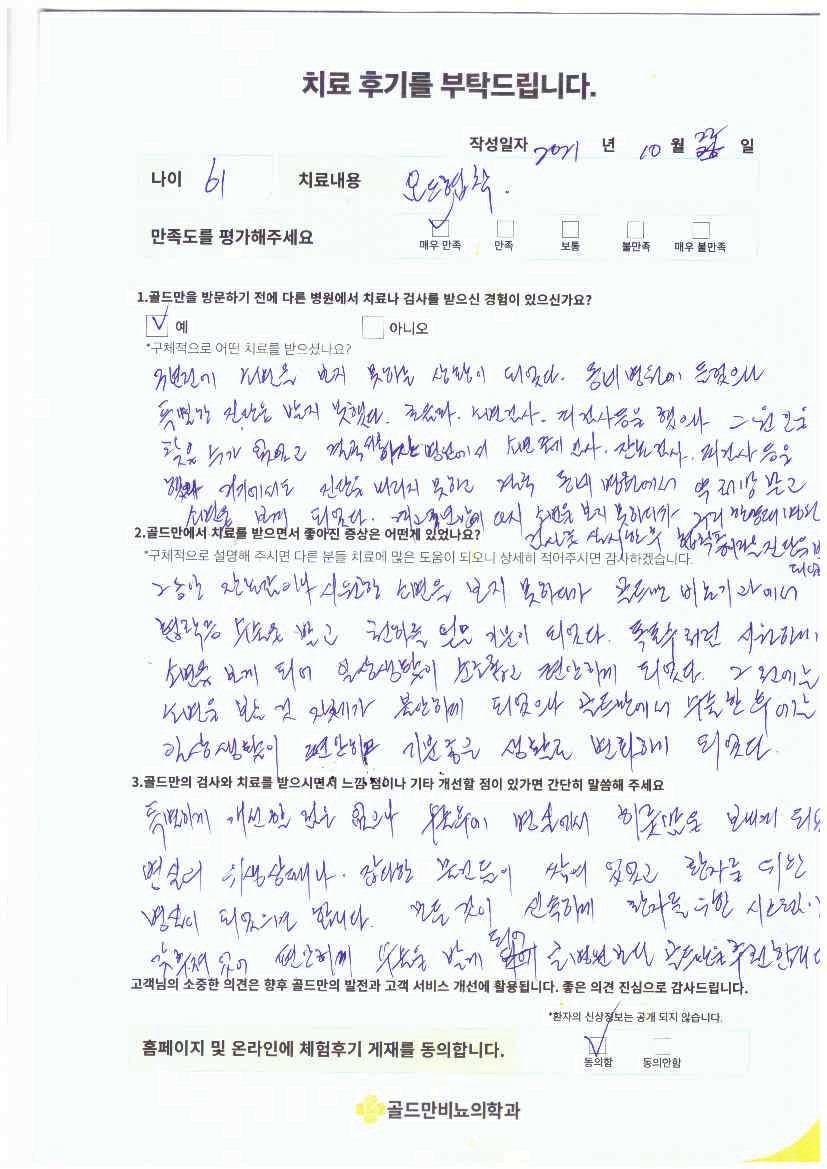 치료 후기를 부탁드립니다.
작성일자 2021 년 10 월 일
나이 61 치료내용
만족도를 평가해주세요
매우 만족 만족 보통 불만족 매우 불만족
1.골드만을 방문하기 전에 다른 병원에서 치료나 검사를 받으신 경험이 있으신가요?
예 아니오
*구체적으로 어떤 치료를 받으셨나요?
소변을 보지 못하는 상황이 되었다. 동네병원에
특별한 진단을 받지 못했다. 초음파. 소변검사. 피검사등을 했으나 그 원인을
찾을 수가 없었고 병원에서 소변 검사. 피검사 등을
거기에서도 진단을 내리지 못하고 결국 동네 병원에서 받고
소변을 보게 되었다. 다시 소변을 보지 못하다가
2.골드만에서 치료를 받으면서 좋아진 증상은 어떤게 있었나요?
*구체적으로 설명해 주시면 다른 분들 치료에 많은 도움이 되오니 상세히 적어주시면 감사하겠습니다.
그동안 잔뇨감이나 시원한 소변을 보지 못하다가 골드만 비뇨기과에서
수술을 받고 천하를 얻은 기분이 되었다. 폭포수처럼 시원하게
소변을 보게 되어 일상생활이 순조롭고 편안하게 되었다. 그 전에는
소변을 보는 것 자체가 불안하게 되었으나 골드만에서 수술한 후에는
일상생활이 편안하고 기분좋은 생활로 변화하게 되었다.
3.골드만의 검사와 치료를 받으시면서 느낀 점이나 기타 개선할 점이 있가면 간단히 말씀해 주세요
특별하게 개선할 점은 없으나 수술후에 병실에서 하룻밤을 보내게 되는
병실의 위생상태나. 잡다한 물건들이 쌓여 있었고 환자를 위한
병실이 되었으면 합니다. 모든 것이 신속하게 환자를 위한
갖춰져 있어 편안하게 수술을 받게 되어
고객님의 소중한 의견은 향후 골드만의 발전과 고객 서비스 개선에 활용됩니다. 좋은 의견 진심으로 감사드립니다.
*환자의 신상정보는 공개 되지 않습니다.
홈페이지 및 온라인에 체험후기 게재를 동의합니다.
동의함 동의안함
골드만비뇨의학과